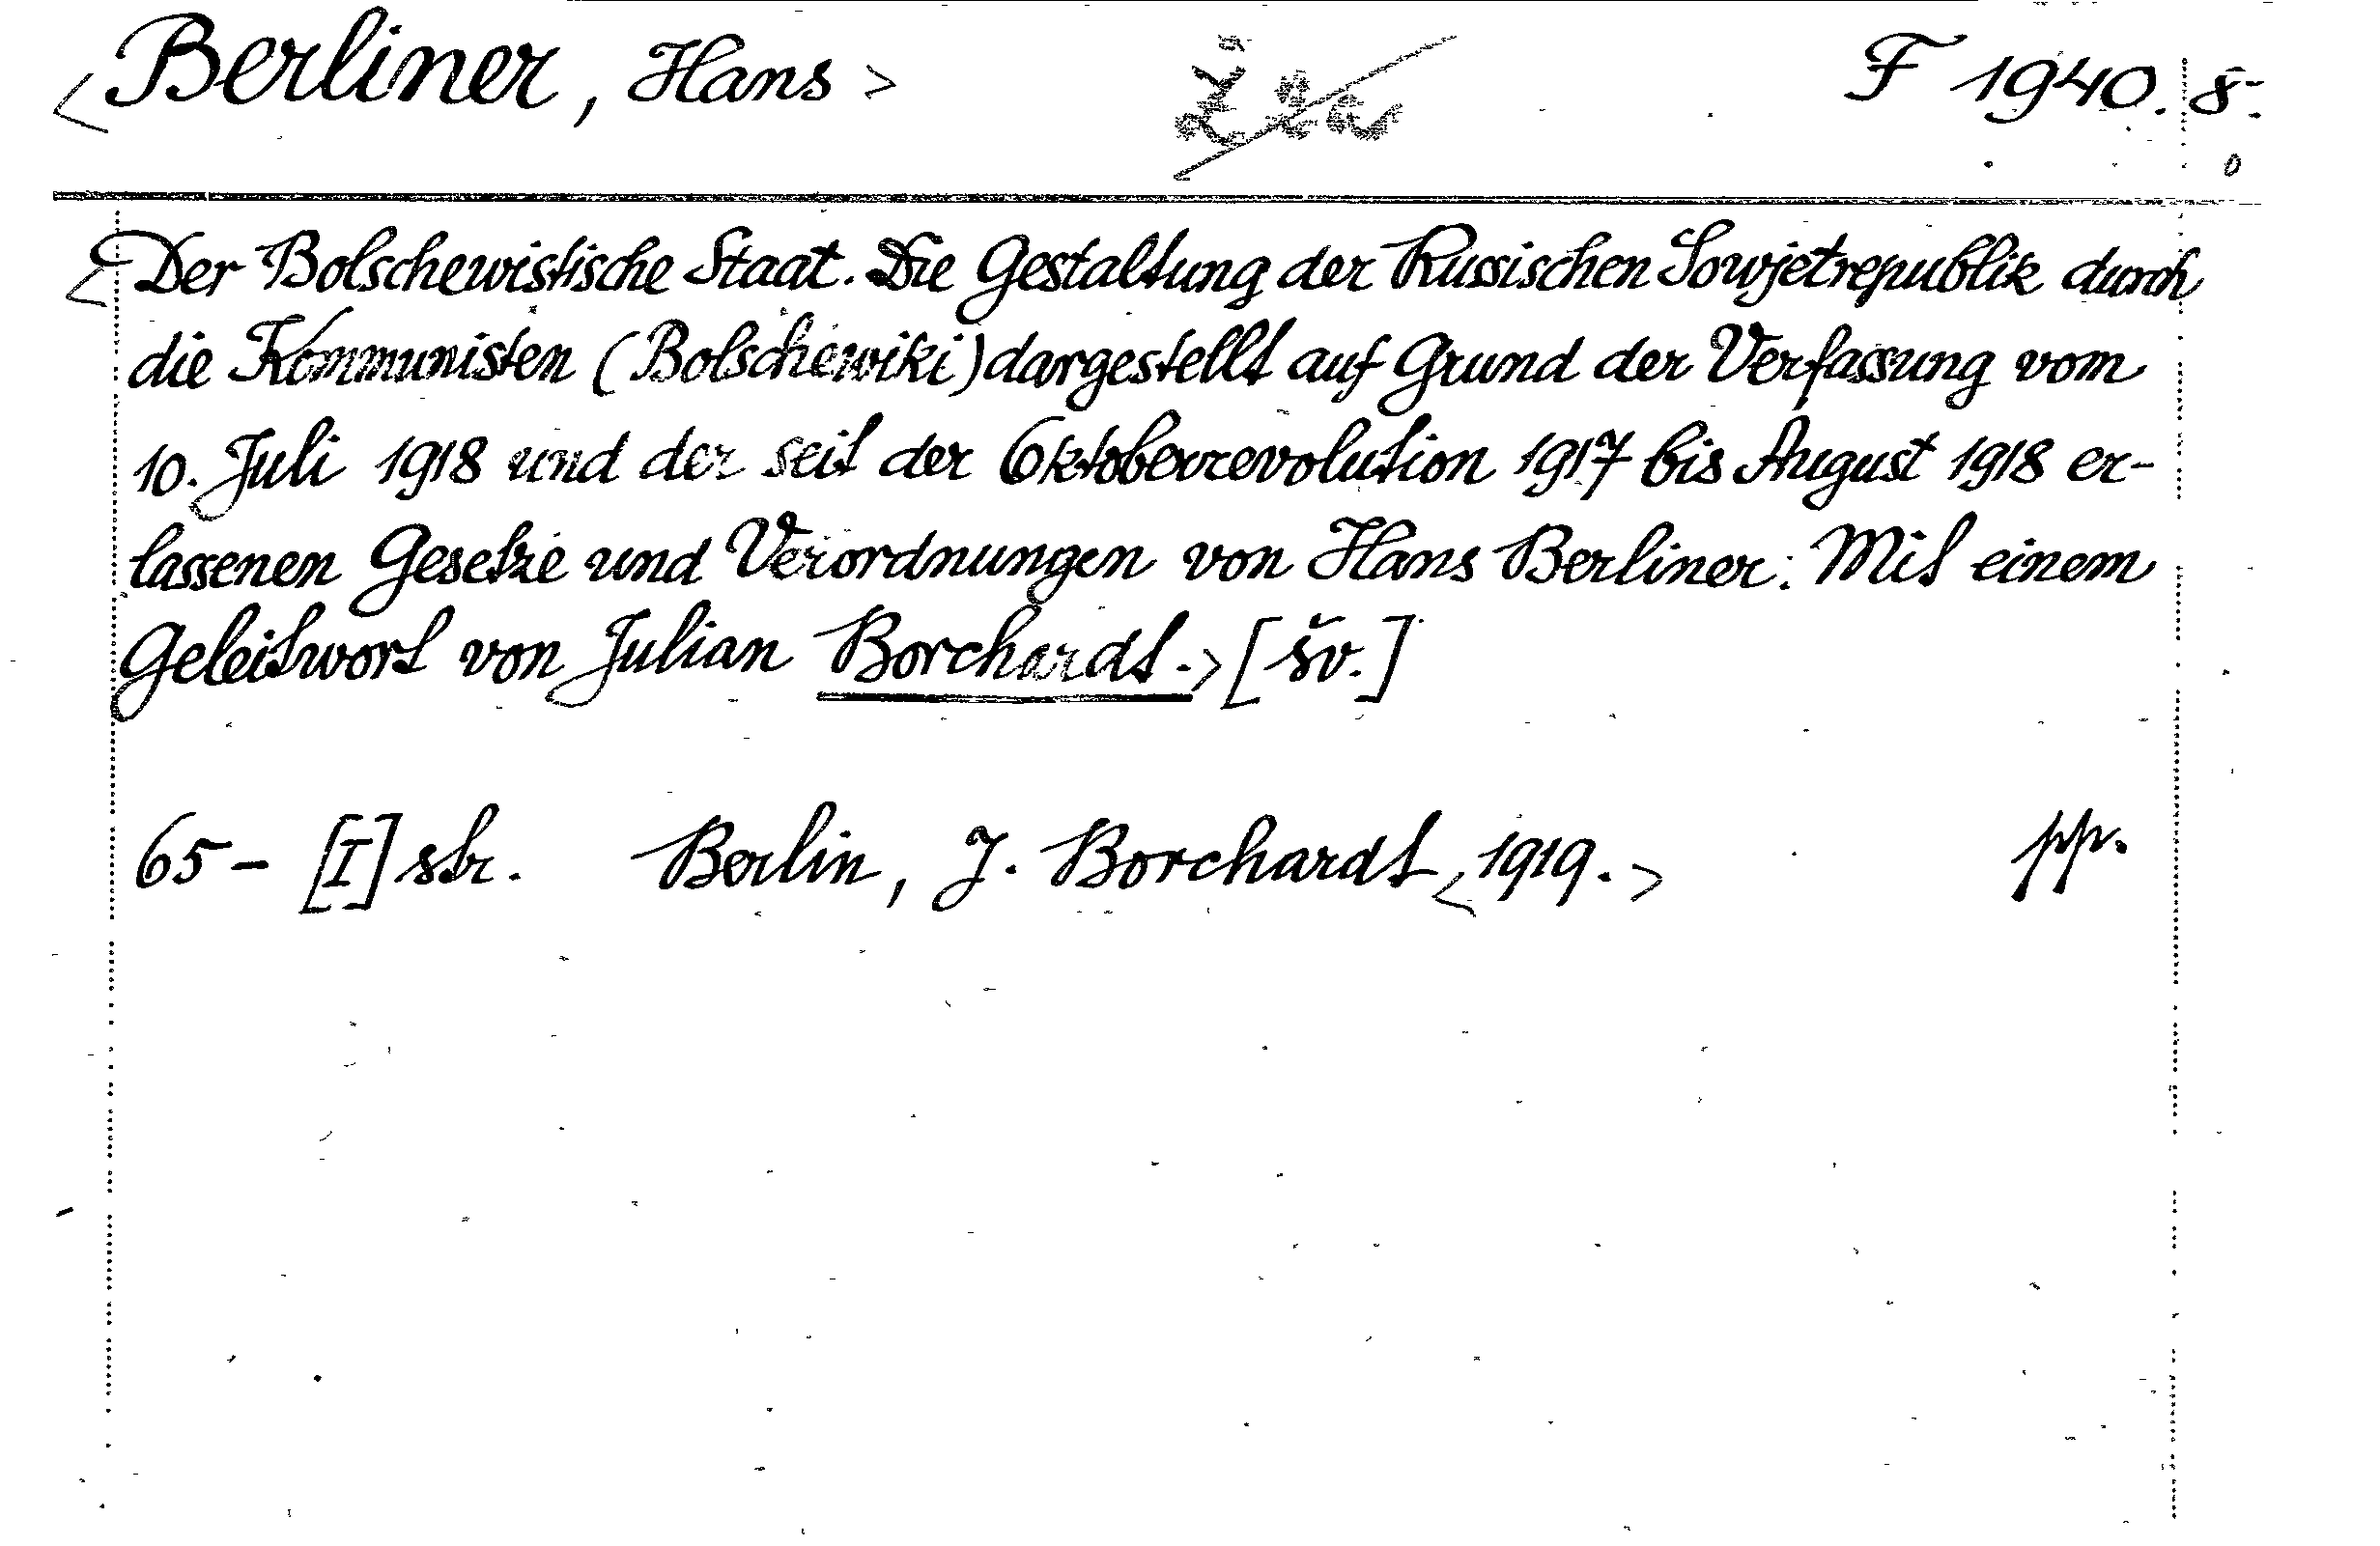 <Berliner, Hans> F 1940. 8.
<Der Bolschewistische Staat. Die Gestaltung der Russischen Sowjetrepublik durch
die Kommunisten (Bolschewiki) dargestellt auf Grund der Verfassung vom
10. Juli 1918 und der seit der Oktoberrevolution 1917 bis August 1918 er-
lassenen Gesetze und Verordnungen von Hans Berliner. Mit einem
Geleitwort von Julian Borchardt.> [šv.]
65-[I] str. Berlin, J. Borchardt <1919.> pp.